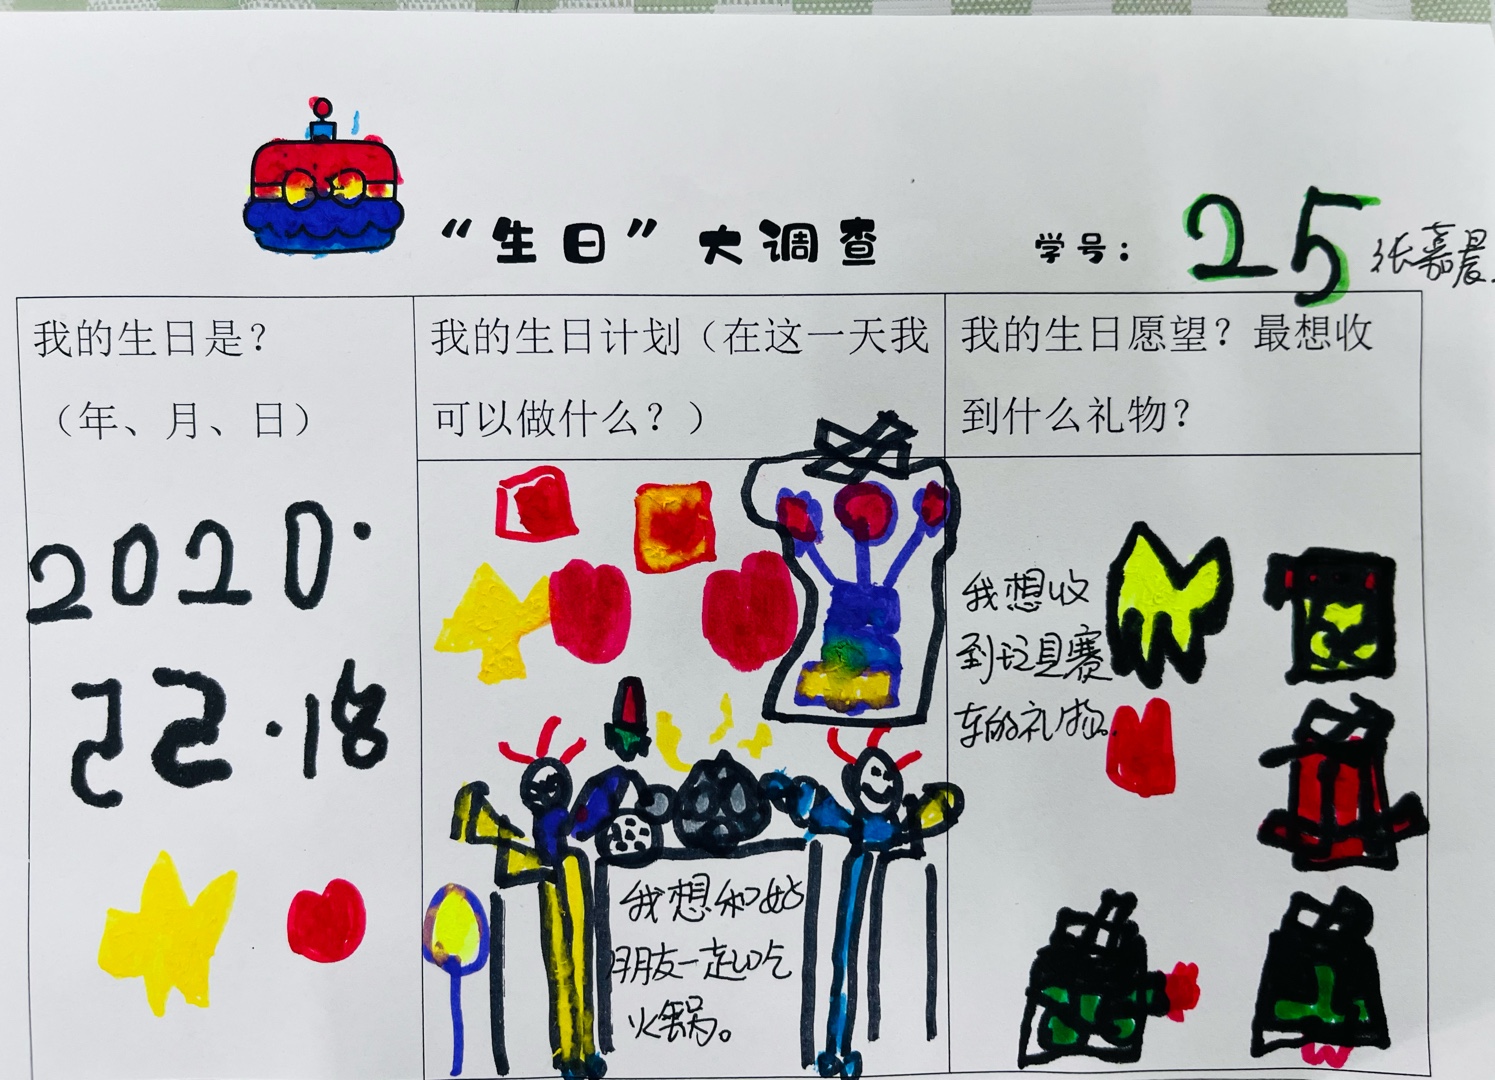 “生日”大调查
学号：25 张嘉晨
我的生日是？
（年、月、日）
2020.
.18
我的生日计划（在这一天我
可以做什么？）
我想和好
朋友一起吃
火锅。
我的生日愿望？最想收
到什么礼物？
我想收
到玩具赛
车的礼物。